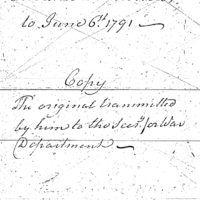 to June 6th 1791 —
Copy
The original transmitted
by him to the Secy for War
Department —